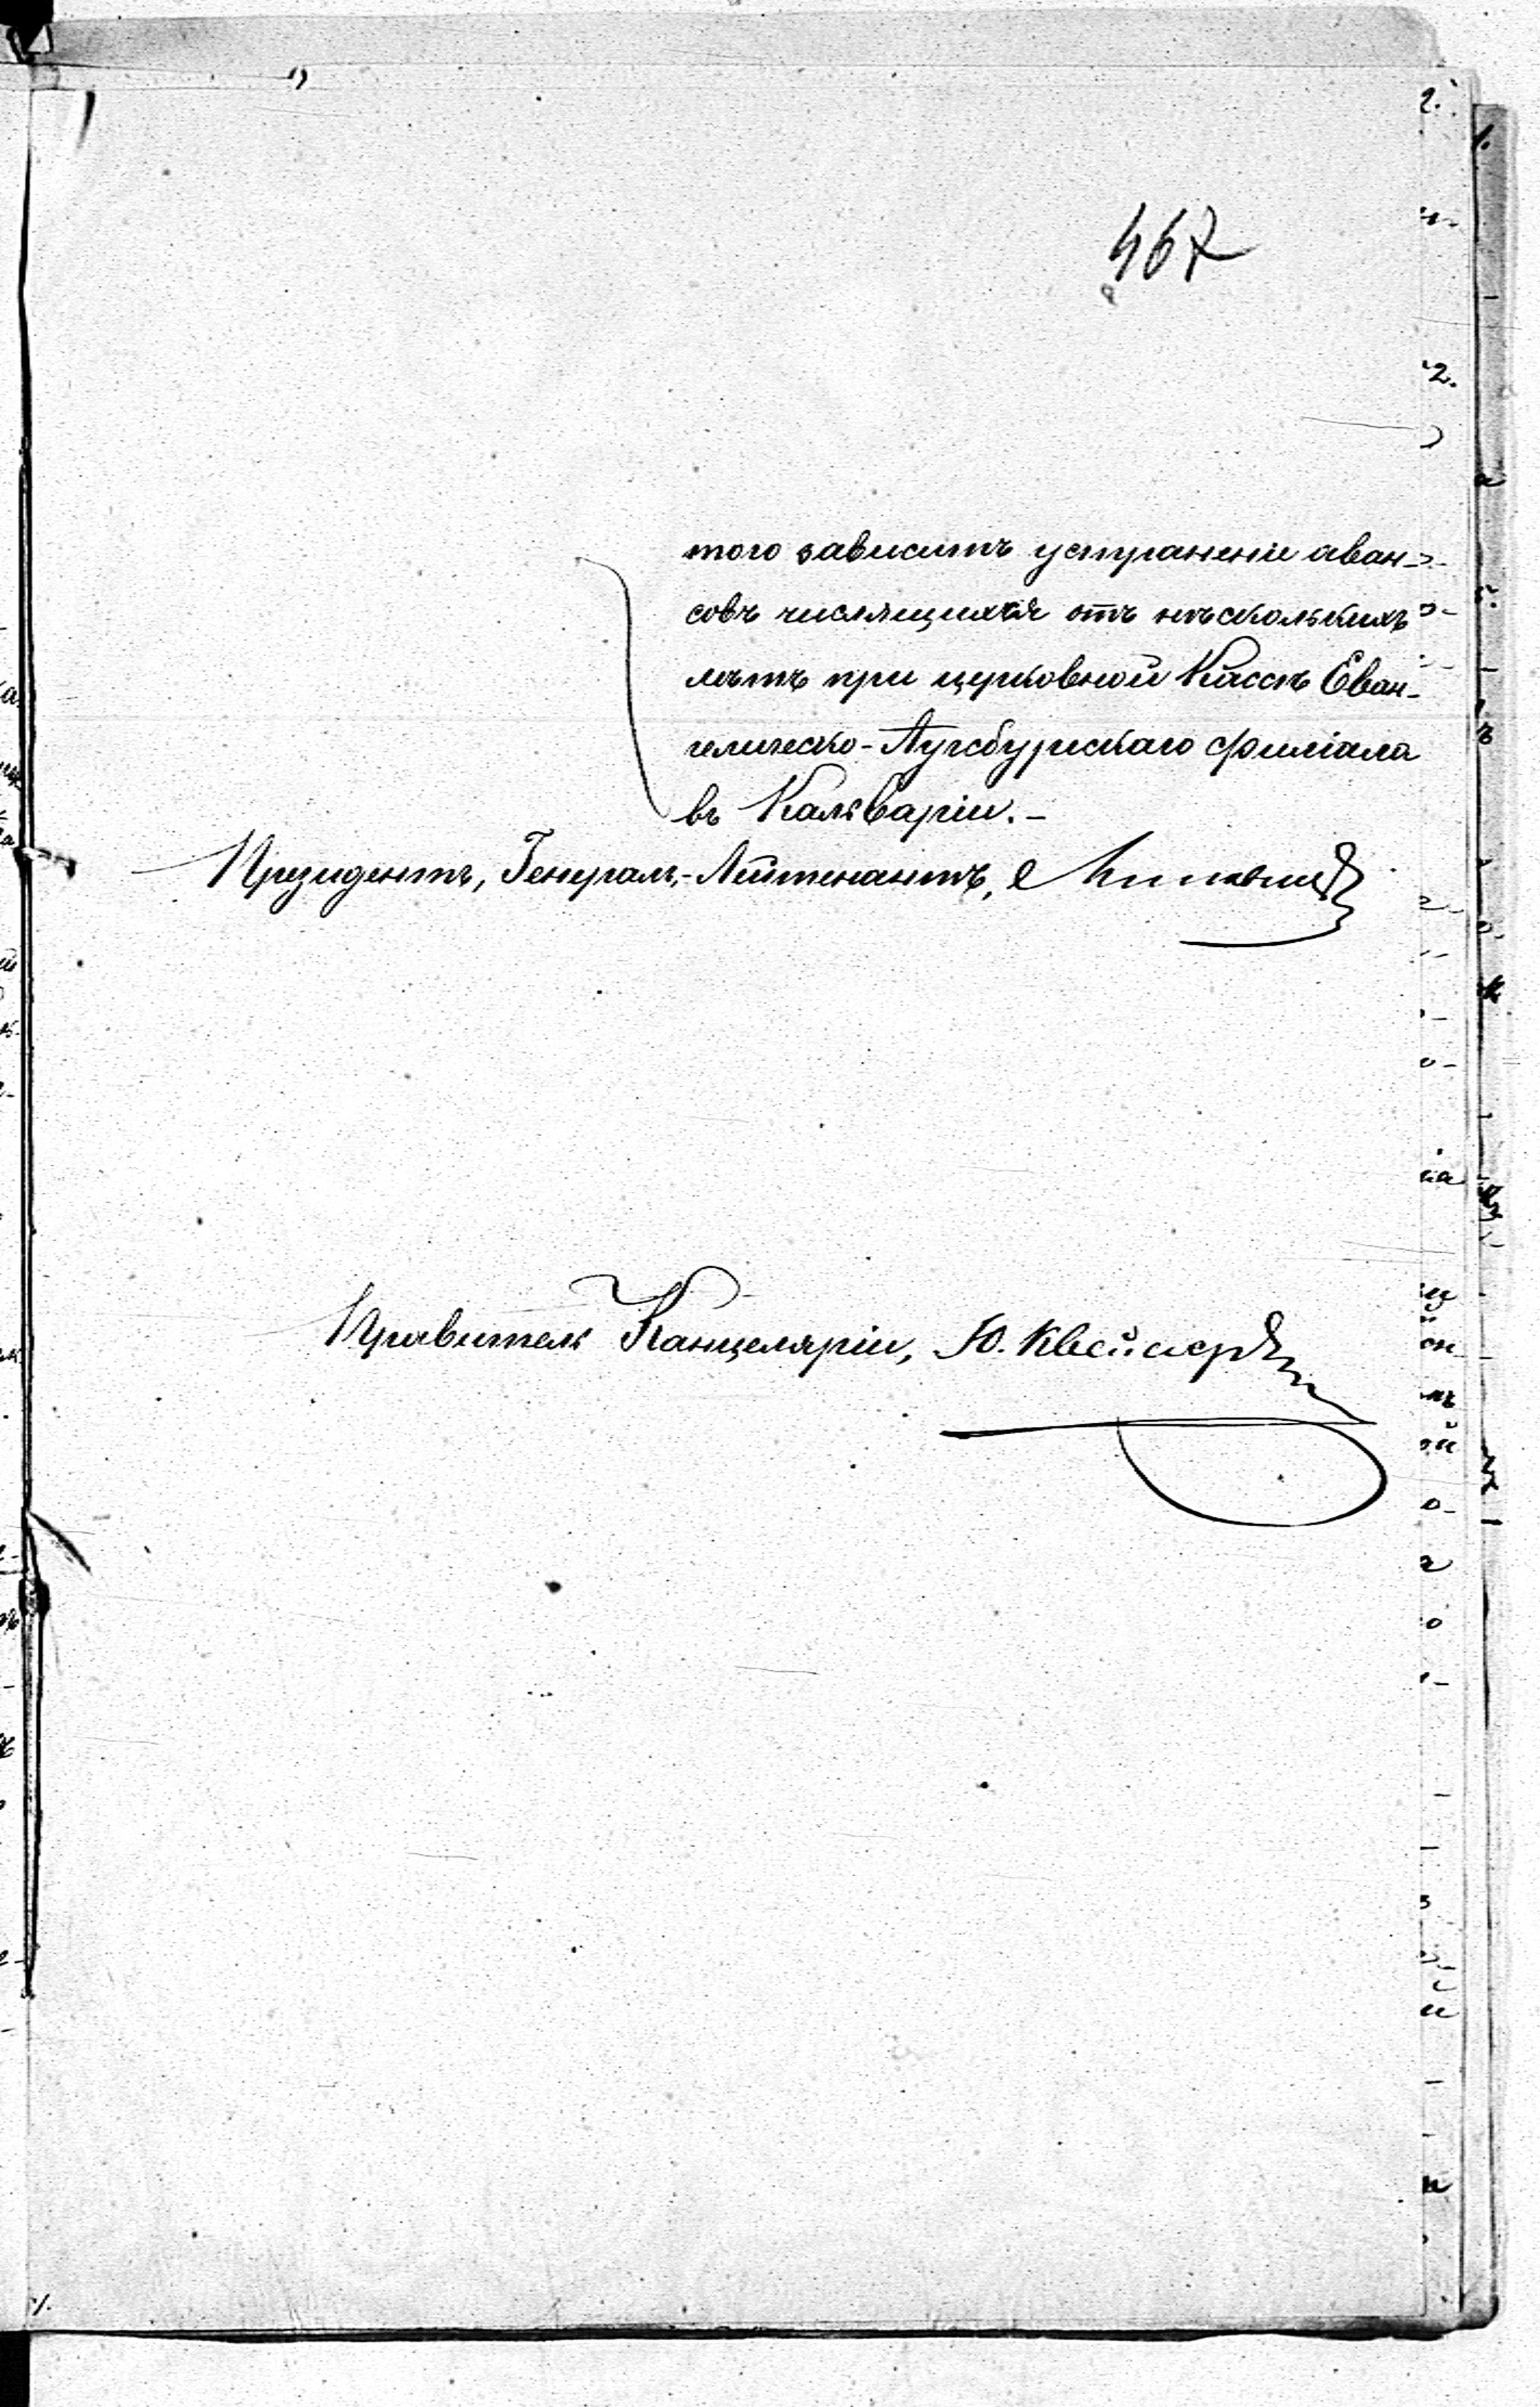 467
того зависитъ устраненіе аван-
совъ числящихся отъ нѣсколькихъ
лѣтъ при церковной Кассѣ Еван-
гелическо-Аугсбургскаго филіала
въ Кальваріи.-
Президентъ, Генералъ-Лейтенантъ,
Правитель Канцеляріи, Ю.